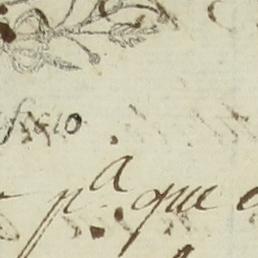 ficio
pª que